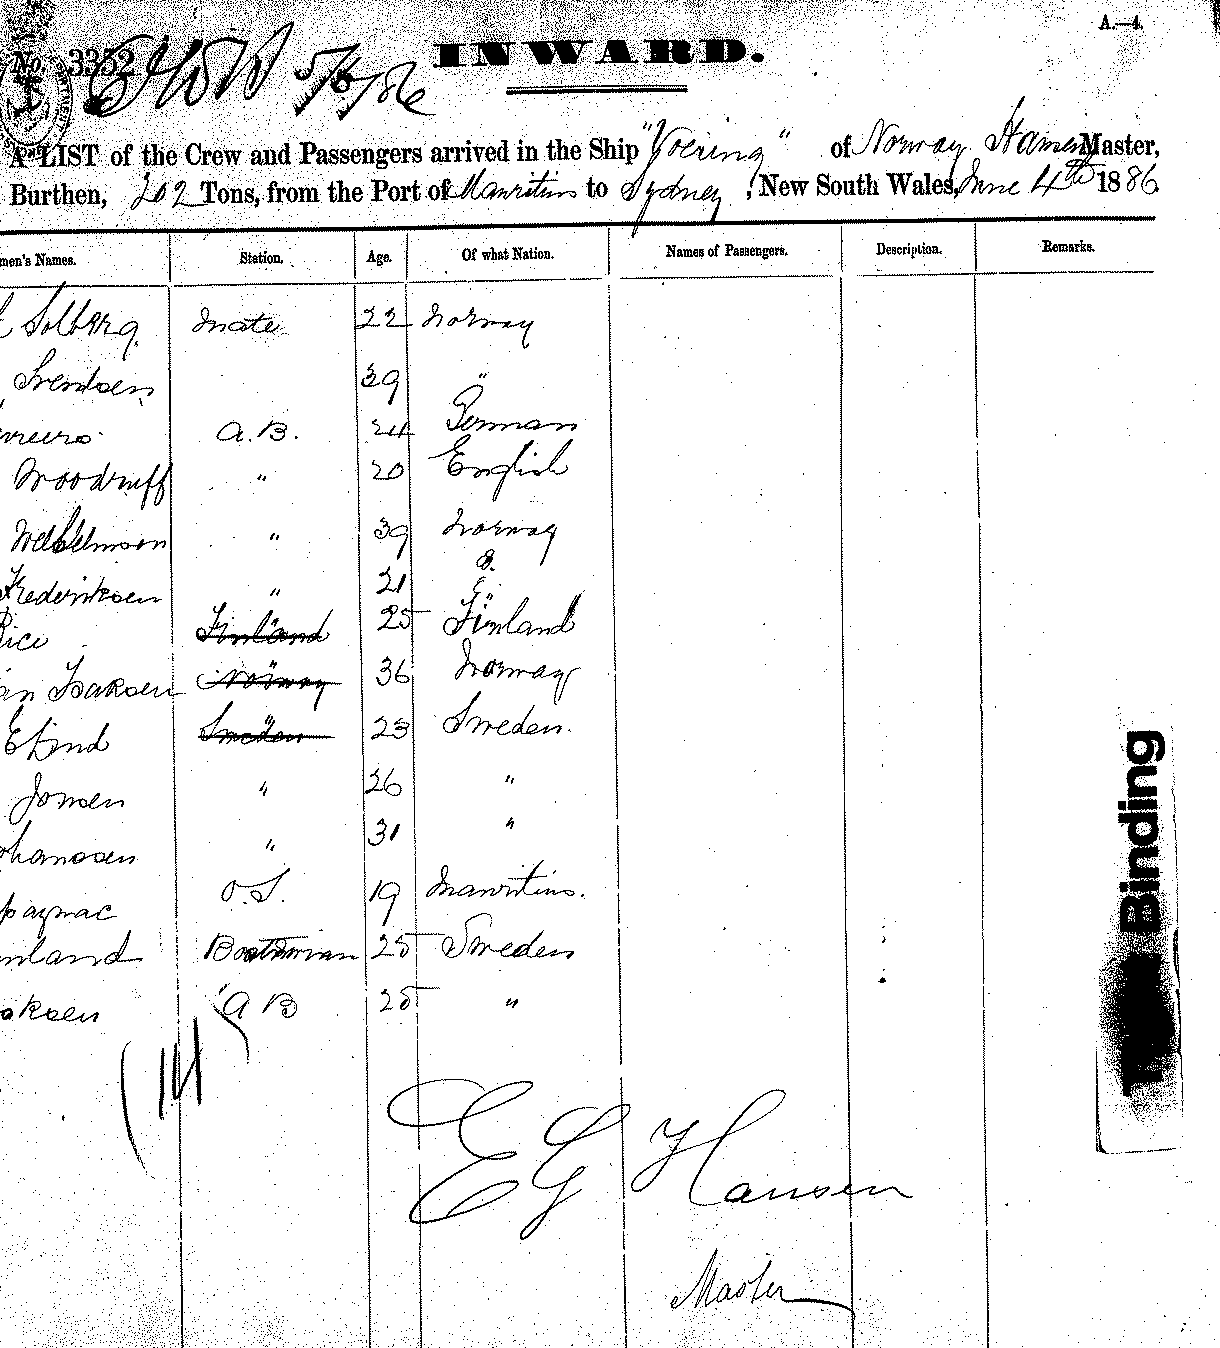 A.—4.
No. 3352 5/6/86 INWARD.
A LIST of the Crew and Passengers arrived in the Ship "Voering" of Norway Hansen Master,
Burthen, 202 Tons, from the Port of Mauritius to Sydney, New South Wales, June 4th 1886
men's Names. Station. Age. Of what Nation. Names of Passengers. Description. Remarks.
Solberg. Mate 22 Norway
Svendsen 29 "
A.B. 24 German
Woodruff " 20 English
" 39 Norway
Frederiksen " 21
Rice Finland 25 Finland
Isaksen Norway 36 Norway
Sweden 23 Sweden.
Jonsen " 26 "
ohanssen " 31 "
pagnac O.S. 19 Mauritius.
nland Boatsman 25 Sweden
aksen A B 25 "
(14)
E G Hansen
Master
Binding